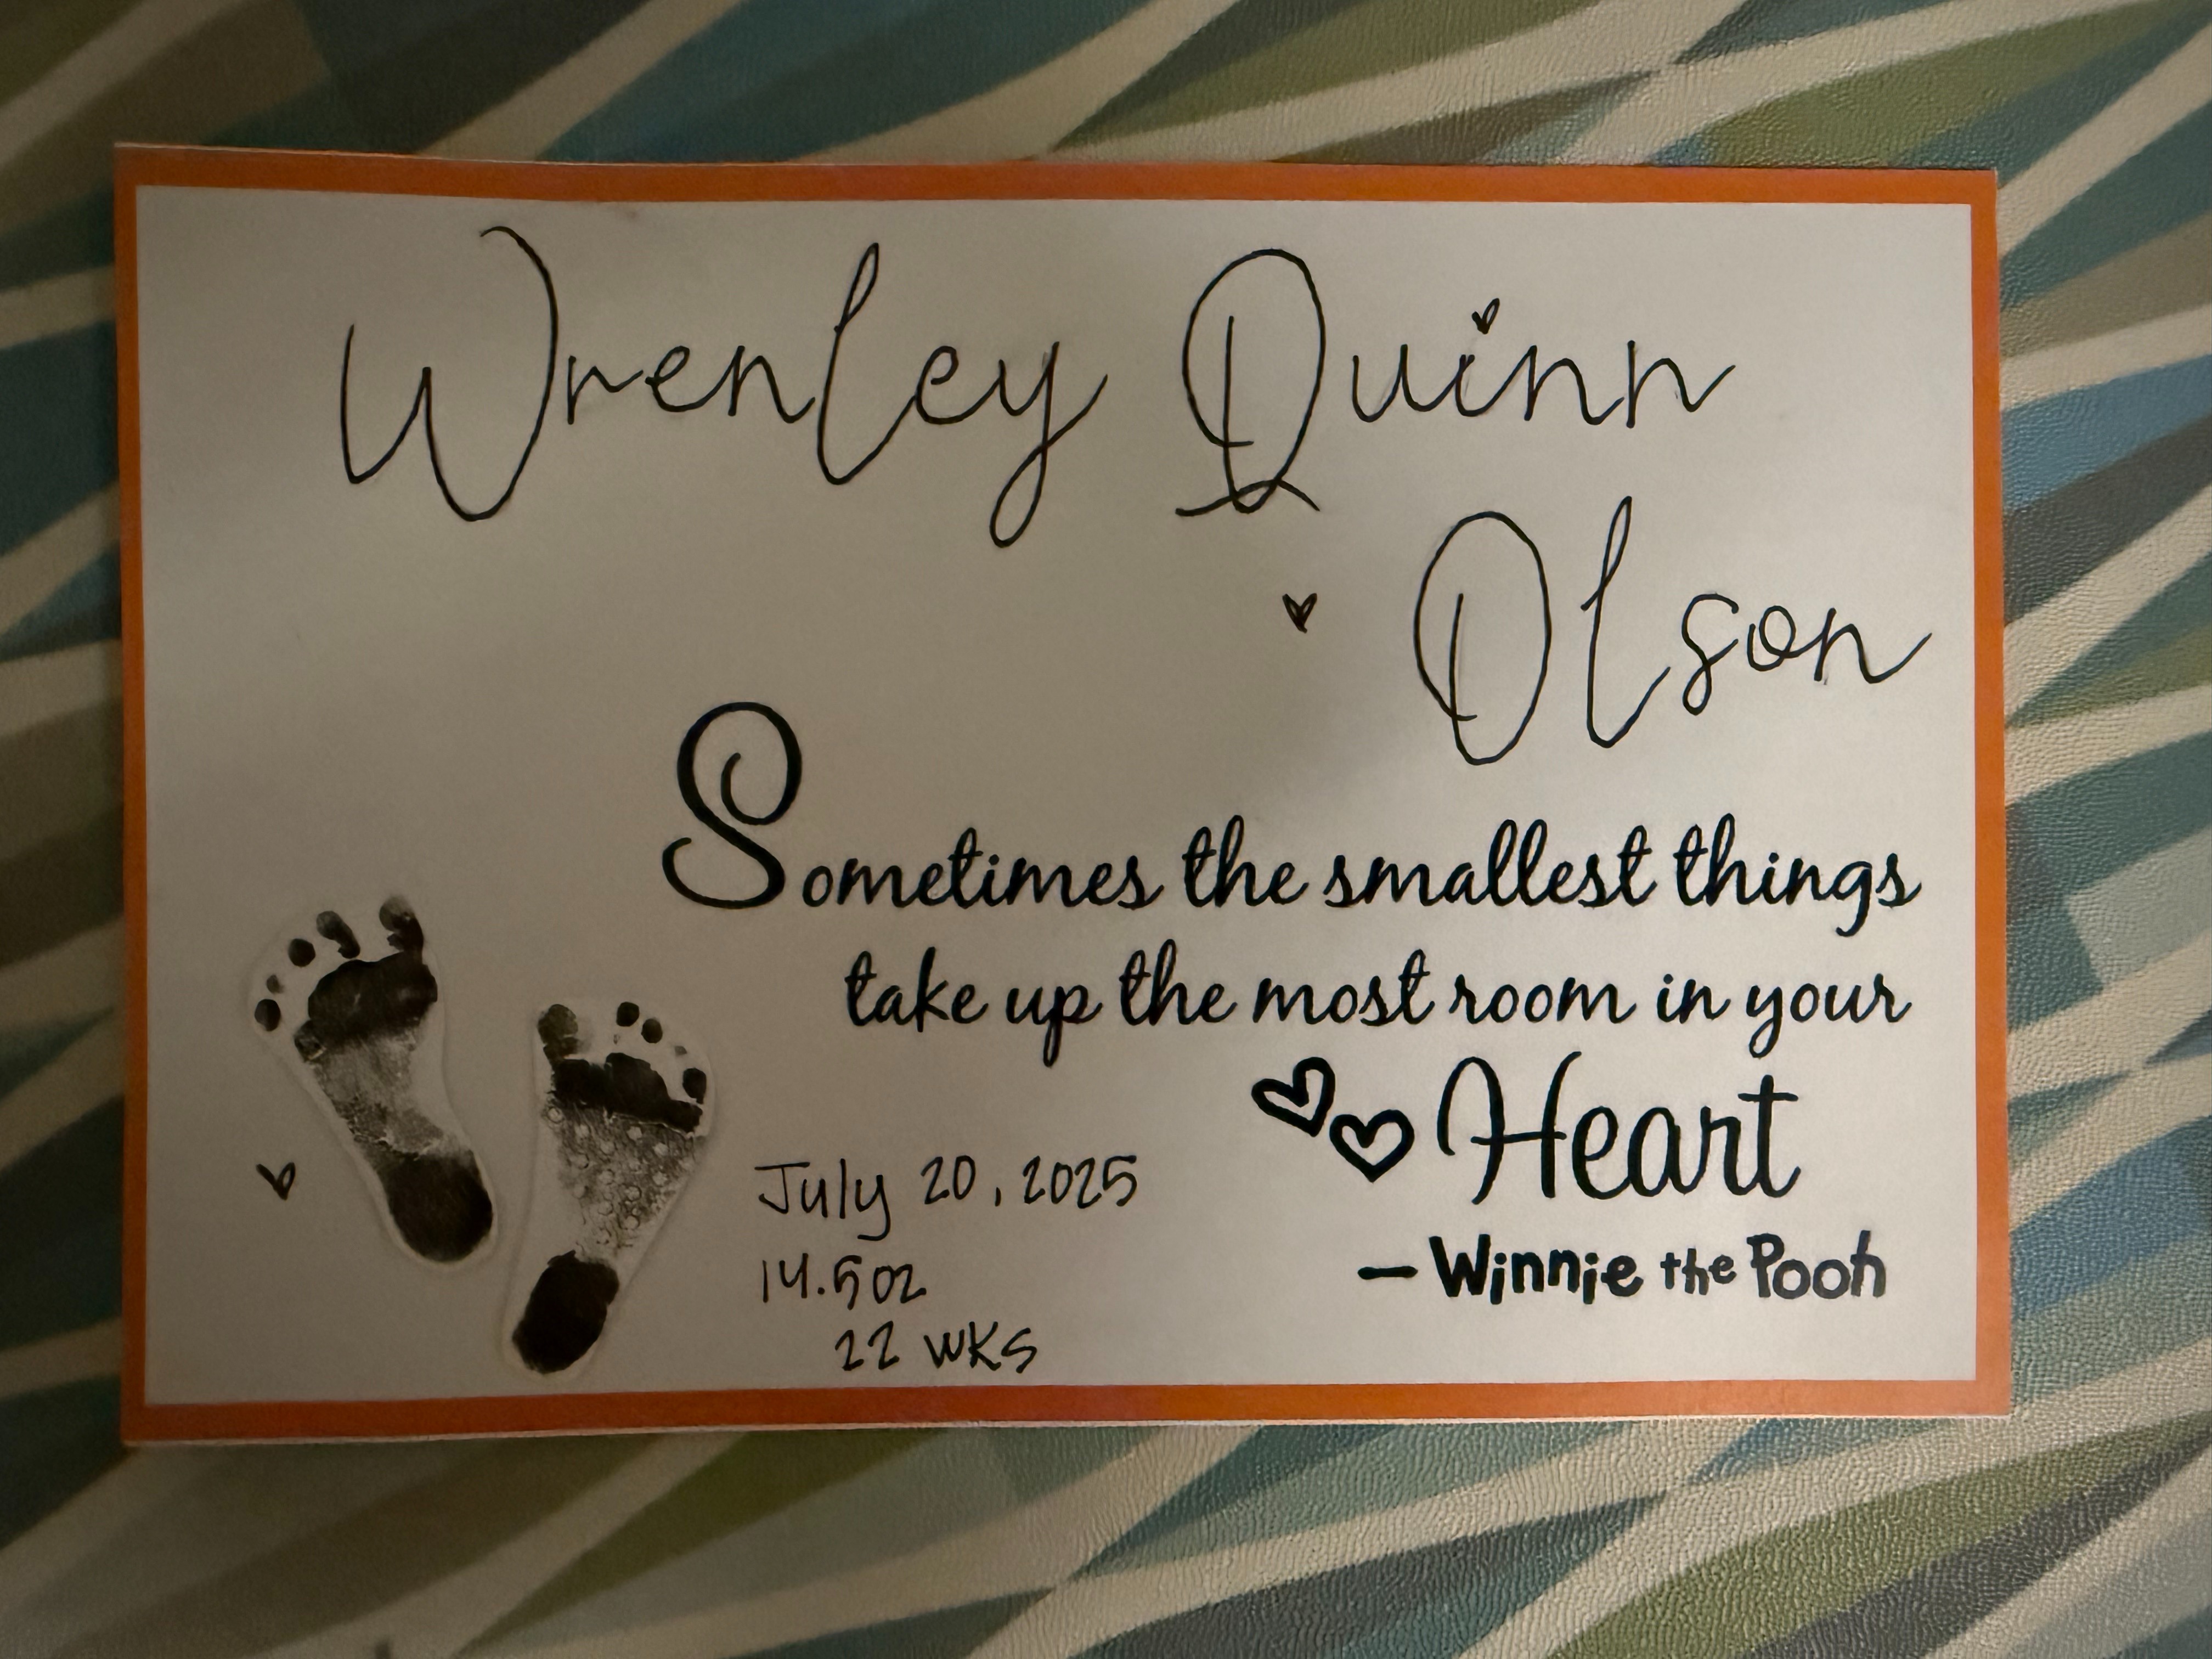 Wrenley Quinn
Olson
Sometimes the smallest things
take up the most room in your
Heart
— Winnie the Pooh
July 20, 2025
14.5oz
22 WKS